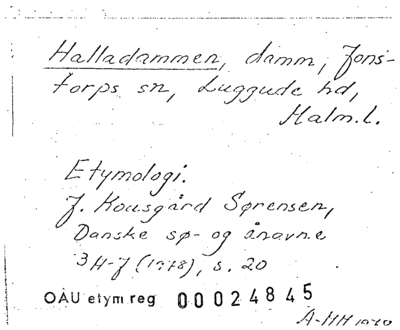 Halladammen, damm, Jons-
torps sn, Luggude hd,
Malm.l.
Etymologi:
J. Kousgård Sørensen,
Danske sø- og ånavne
3 H-J (1978), s. 20
OAU etym reg 00024845
A-HH